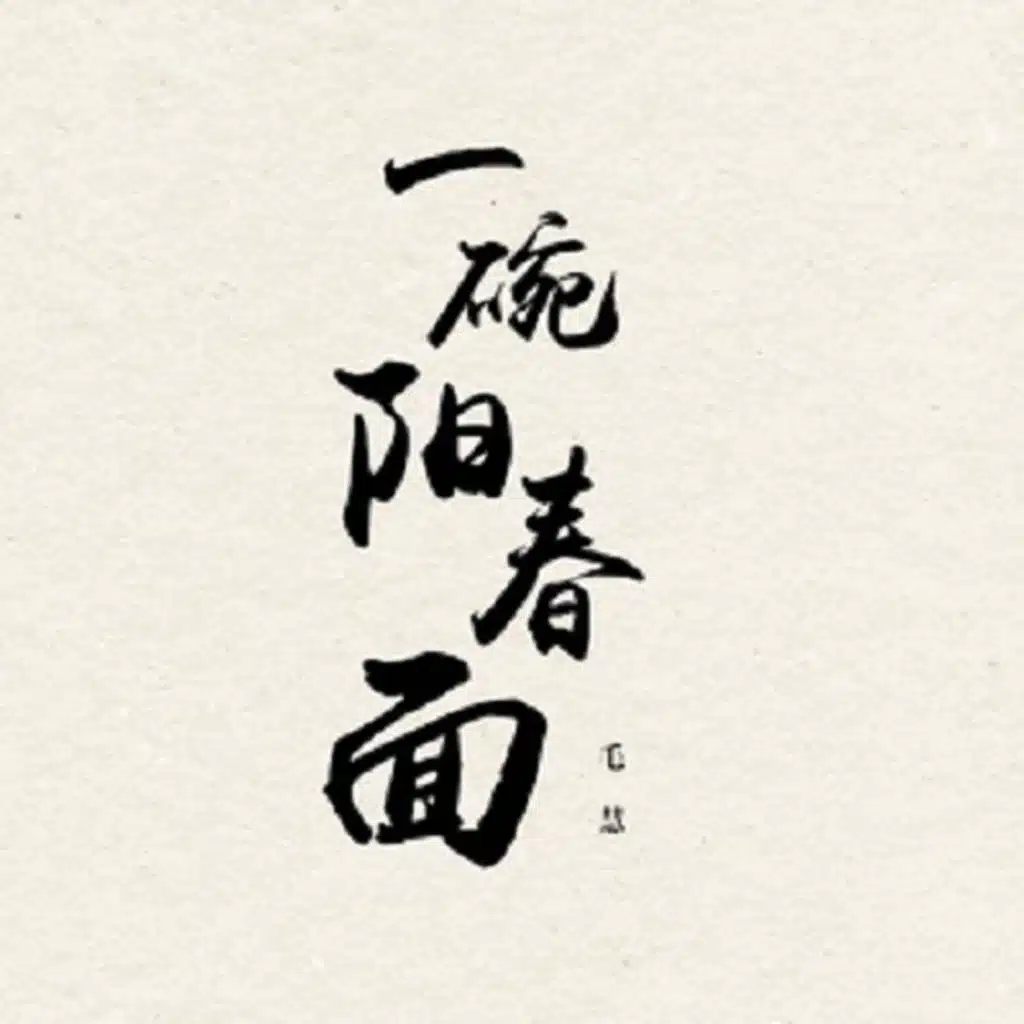 一碗阳春面